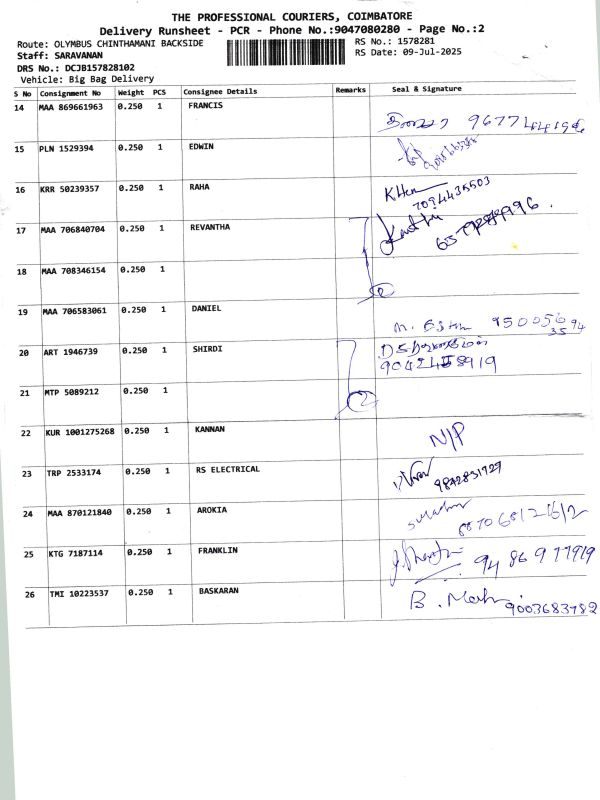 THE PROFESSIONAL COURIERS, COIMBATORE
Delivery Runsheet - PCR - Phone No.:9047080280 - Page No.:2
Route: OLYMBUS CHINTHAMANI BACKSIDE
RS No.: 1578281
Staff: SARAVANAN
RS Date: 09-Jul-2025
DRS No.: DCJB157828102
Vehicle: Big Bag Delivery
S No Consignment No Weight PCS Consignee Details Remarks Seal & Signature
14 MAA 869661963 0.250 1 FRANCIS
15 PLN 1529394 0.250 1 EDWIN
16 KRR 50239357 0.250 1 RAHA
7094435503
17 MAA 706840704 0.250 1 REVANTHA
18 MAA 708346154 0.250 1
2
19 MAA 706583061 0.250 1 DANIEL
20 ART 1946739 0.250 1 SHIRDI
21 MTP 5089212 0.250 1
2
22 KUR 1001275268 0.250 1 KANNAN N/P
23 TRP 2533174 0.250 1 RS ELECTRICAL
9842831727
24 MAA 870121840 0.250 1 AROKIA
25 KTG 7187114 0.250 1 FRANKLIN
9486977919
26 TMI 10223537 0.250 1 BASKARAN
9003683782